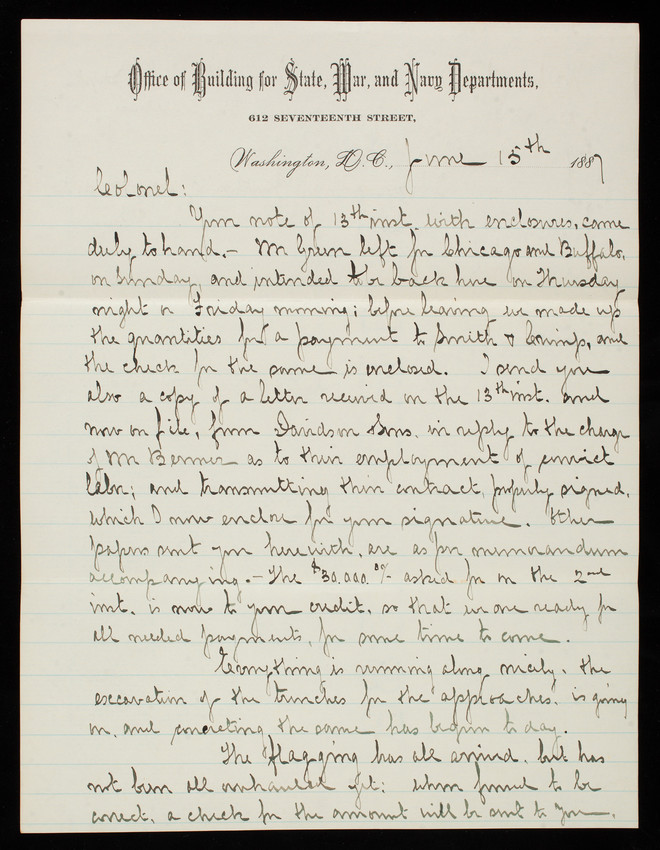 Office of Building for State, War, and Navy Departments,
612 SEVENTEENTH STREET,
Washington, D.C., June 15th 1887
Colonel:
Your note of 13th inst. with enclosures, came
duly to hand. – Mr Green left for Chicago and Buffalo,
on Sunday, and intended to be back here on Thursday
night or Friday morning; before leaving we made up
the quantities for a payment to Smith & Crimp, and
the check for the same is enclosed. I send you
also a copy of a letter received on the 13th inst. and
now on file, from Davidson Sons. in reply to the charge
of Mr as to their employment of convict
labor; and transmitting their contract, properly signed,
which I now enclose for your signature. Other
papers sent you herewith, are as per memorandum
accompanying. – The $30,000.00/ asked for on the 2nd
inst. is now to your credit, so that we are ready for
all needed payments, for some time to come.
Everything is running along nicely. the
excavation of the trenches for the approaches, is going
on, and concreting the same has begun to day.
The flagging has all arrived. but has
not been all overhauled yet: when found to be
correct, a check for the amount will be sent to you.